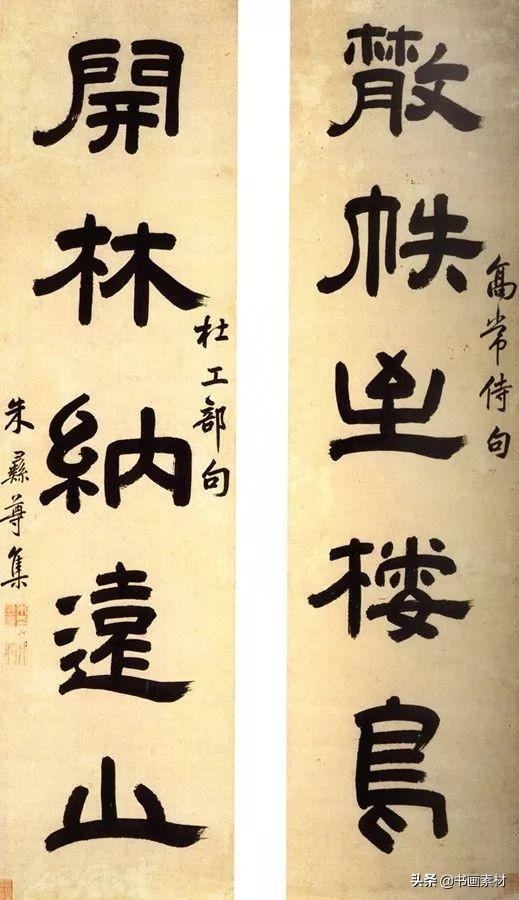 散帙至棲鳥
高常侍句
開林納遠山
杜工部句
朱彝尊集
头条 @书画素材